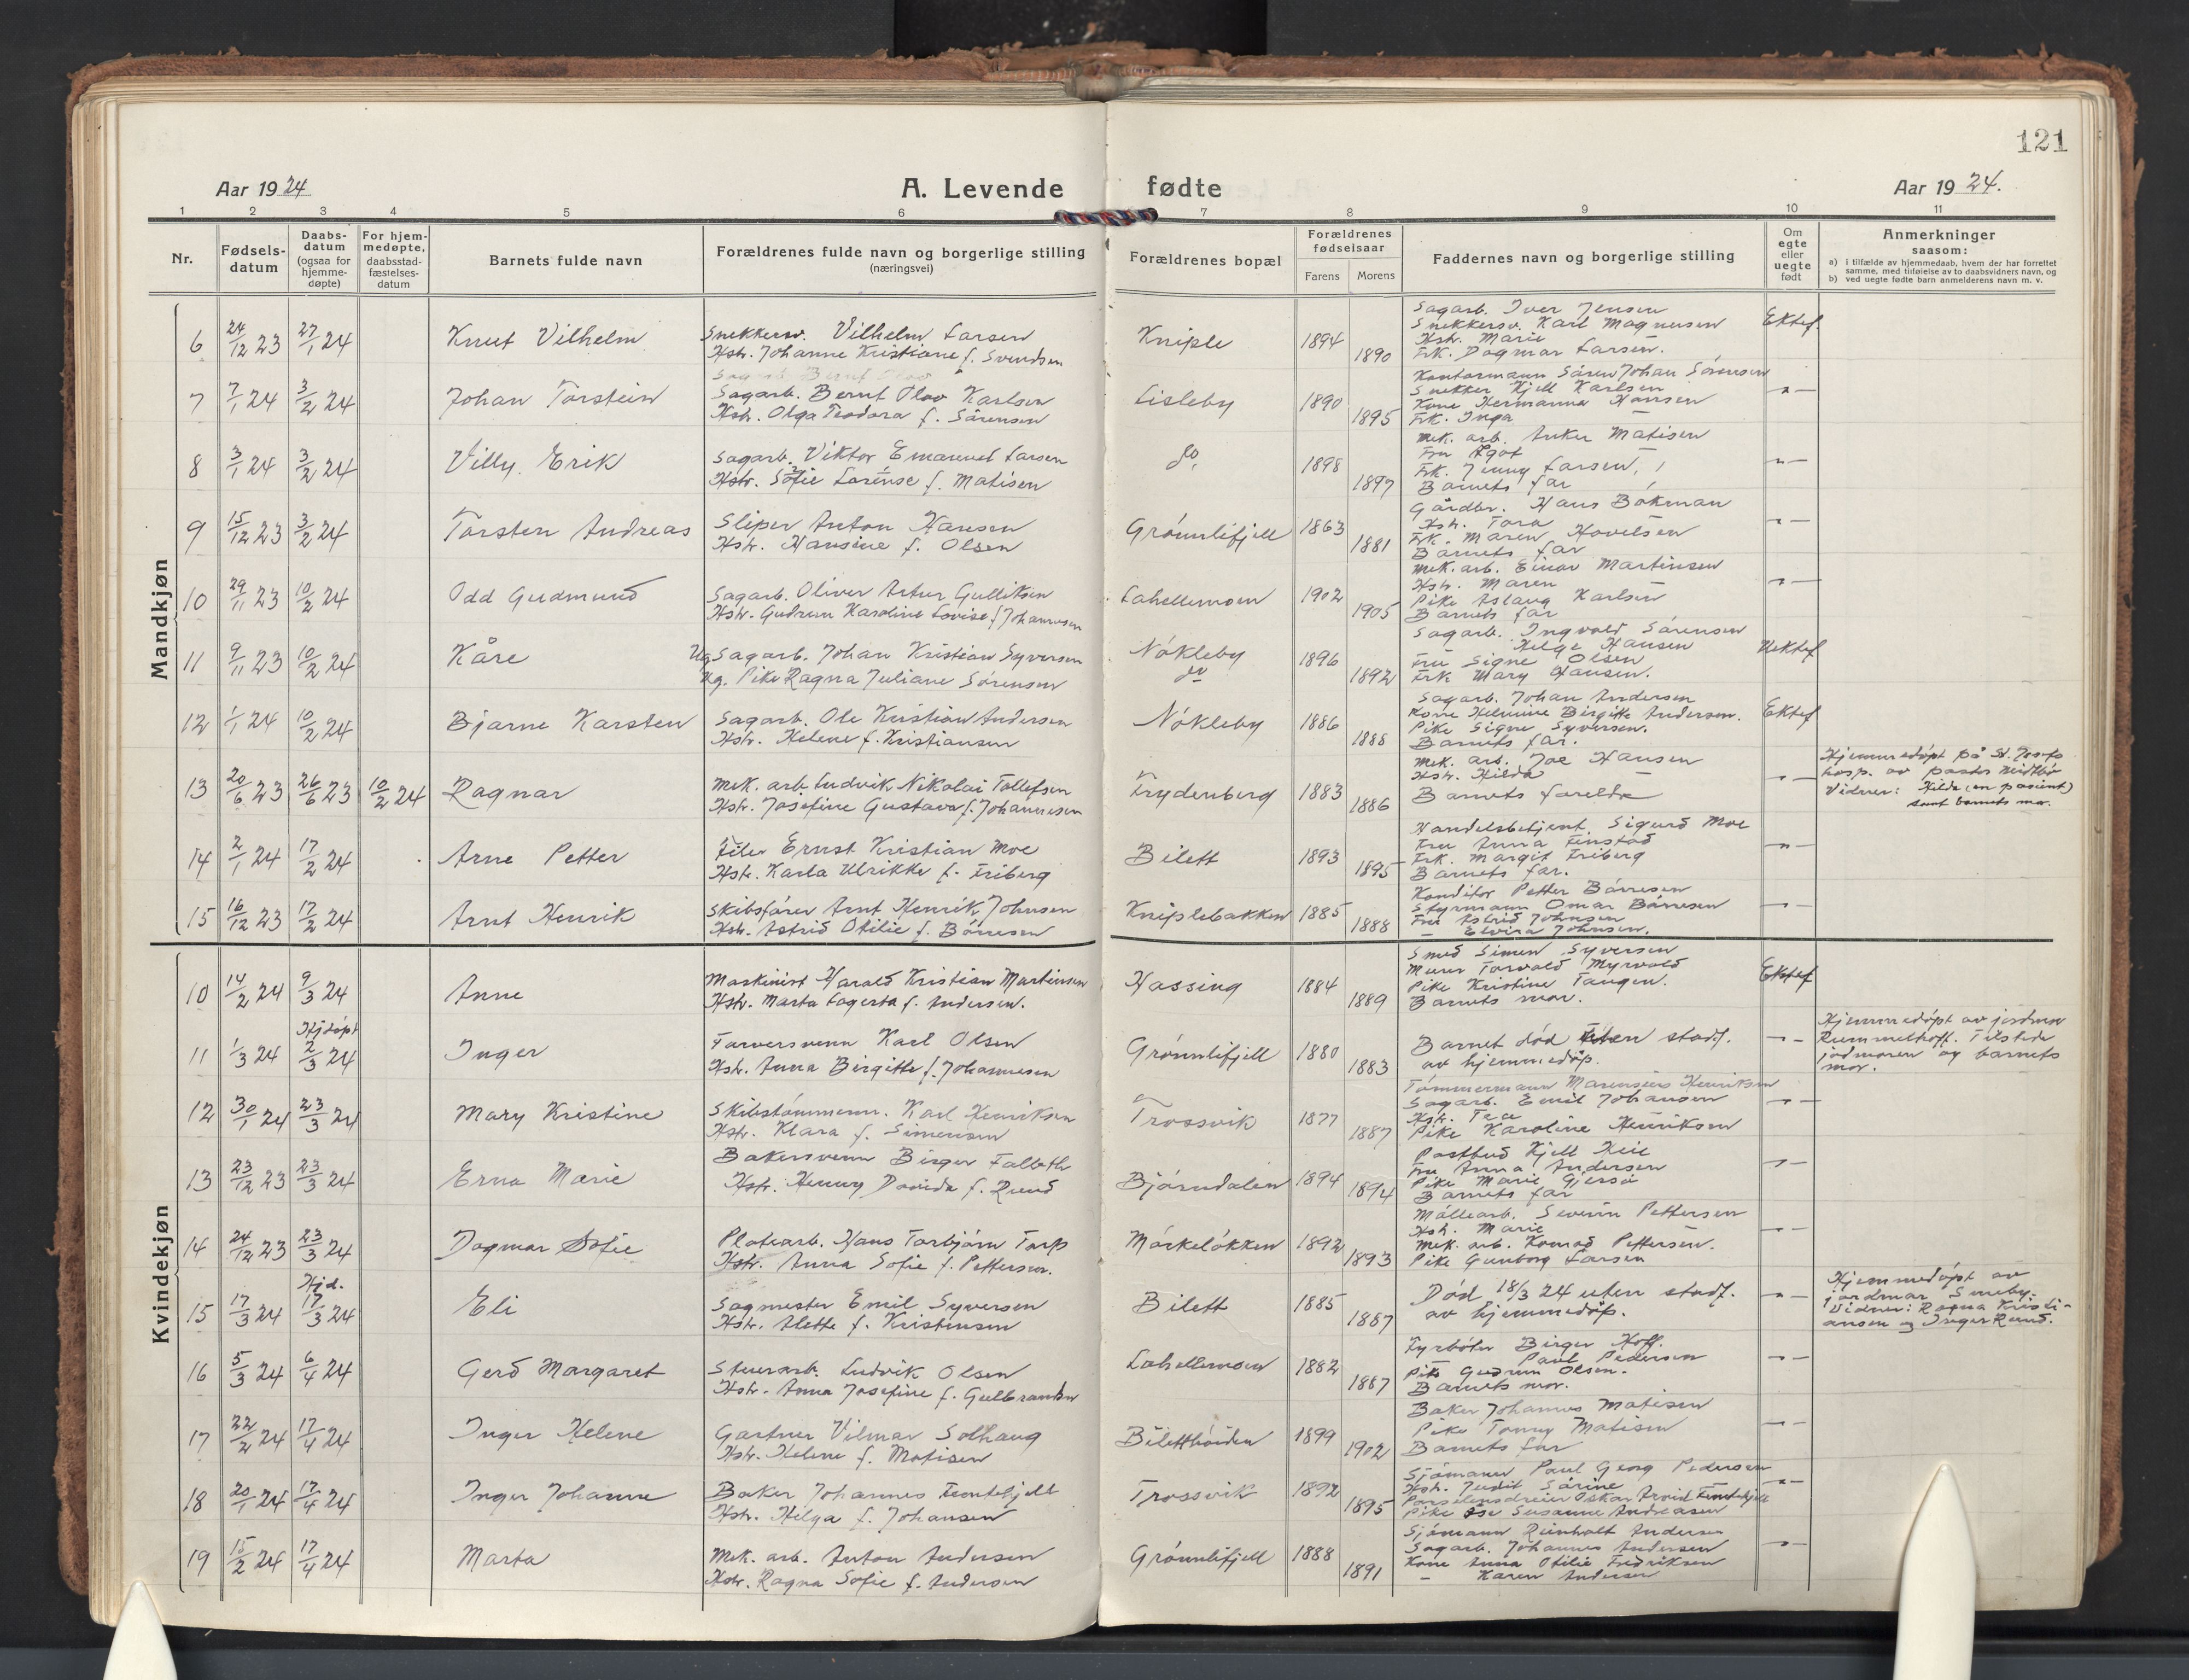 121
Aar 1924
A. Levende fødte
Aar 1924.
1 2 3 4 5 6 7 8 9 10 11
Nr.
Fødsels-
datum
Daabs-
datum
(ogsaa for
hjemme-
døpte)
For hjem-
medøpte,
daabsstad-
fæstelses-
datum
Barnets fulde navn
Forældrenes fulde navn og borgerlige stilling
(næringsvei)
Forældrenes bopæl
Forældrenes
fødselsaar
Farens Morens
Faddernes navn og borgerlige stilling
Om
egte
eller
uegte
født
Anmerkninger
saasom:
a) i tilfælde av hjemmedaab, hvem der har forrettet
samme, med tilføielse av to daabsvidners navn, og
b) ved uegte fødte barn anmelderens navn m. v.
Mandkjøn
6 24/12 23 27/1 24 Knut Vilhelm
Snekkersv. Vilhelm Larsen
Hstr. Johanne Kristiane f. Svendsen
Kniple 1894 1890
Sagarb. Iver Jensen
Snekkersv. Karl Magnussen
Hstr. Marie
Frk. Dagmar Larsen.
Ektef.
7 7/1 24 3/2 24 Johan Torstein
Sagarb. Bernt Olav Karlsen
Hstr. Olga Teodora f. Sörensen
Lisleby 1890 1895
Kontormann Sören Johan Sörensen
Snekker Kjell Karlsen
Kone Hermanna Hansen
Frk. Inga —
-"-
8 3/1 24 3/2 24 Villy Erik
Sagarb. Viktor Emanuel Larsen
Hstr. Sofie Larense f. Matisen
do. 1898 1897
Mek. arb. Anker Matisen
Fru Agot —
Frk. Jenny Larsen
Barnets far
-"-
9 15/12 23 3/2 24 Torsten Andreas
Sliper Anton Hansen
Hstr. Hansine f. Olsen
Grönnlifjell 1863 1881
Gårdbr. Hans Bökman
Hstr. Tora
Frk. Maren Hovelsen
Barnets far
-"-
10 29/11 23 10/2 24 Odd Gudmund
Sagarb. Oliver Artur Gulliksen
Hstr. Gudrun Karoline Lovise f. Johannesen
Lahellemoen 1902 1905
Mek. arb. Einar Martinsen
Hstr. Maren —
Pike Aslaug Karlsen
Barnets far
-"-
11 9/11 23 10/2 24 Kåre
Ug. Sagarb. Johan Kristian Syversen
Ug. Pike Ragna Juliane Sörensen
Nökleby
do 1896 1892
Sagarb. Ingvald Sörensen
Helge Hansen
Fru Signe Olsen
Frk Mary Hansen.
Uektef
12 1/1 24 10/2 24 Bjarne Karsten
Sagarb. Ole Kristian Andersen
Hstr. Helene f. Kristiansen
Nökleby 1886 1888
Sagarb. Johan Andersen
Kone Helmine Birgitte Andersen.
Pike Signe Syversen.
Barnets far.
Ektef
13 20/6 23 26/6 23 10/2 24 Ragnar
Mek. arb. Ludvik Nikolai Tollefsen
Hstr. Josefine Gustava f. Johannesen
Frydenberg 1883 1886
Mek. arb. Joe Hansen
Hstr. Hilda —
Barnets forelde
-"-
Hjemmedöpt på St. Josefs
hosp. av pastor
Vidner: Hilda (en pasient)
samt barnets mor.
14 2/1 24 17/2 24 Arne Petter
Filer Ernst Kristian Moe
Hstr. Karla Ulrikke f. Friberg
Bilett 1893 1895
Handelsbetjent Sigurd Moe
Fru Anna Finstad
Frk. Margit Friberg
Barnets far.
-"-
15 16/12 23 17/2 24 Arnt Henrik
Skibsförer Arnt Henrik Johnsen
Hstr. Astrid Otilie f. Börresen
Kniplebakken 1885 1888
Konditor Petter Börresen
Styrmann Omar Börresen
Fru Astrid Johnsen
— Elvira Johnsen.
-"-
Kvindekjøn
10 14/2 24 9/3 24 Anne
Maskinist Harald Kristian Martinsen
Hstr. Marta Lagerta f. Andersen.
Hassing 1884 1889
Smed Simen Syversen
Murer Torvald Myrvold
Pike Kristine Tangen.
Barnets mor.
Ektef
11 1/3 24 Hjdöpt 2/3 24 Inger
Farversvenn Karl Olsen
Hstr. Anna Birgitte f. Johannesen
Grönnlifjell 1880 1883
Barnet död uten stadf.
av hjemmedöp.
-"-
Hjemmedöpt av jordmor
Rummelhoff. Tilstede
jordmoren og barnets
mor.
12 30/1 24 23/3 24 Mary Kristine
Skibstömmerm. Karl Henriksen
Hstr. Klara f. Simensen
Trossvik 1877 1887
Tömmermann Marensius Henriksen
Sagarb. Emil Johansen
Hstr. Tea —
Pike Karoline Henriksen
-"-
13 23/12 23 23/3 24 Erna Marie
Bakersvenn Birger Falleth
Hstr. Henny Davida f. Ruud
Björndalen 1894 1894
Postbud Kjell Keie
Fru Anna Andersen
Pike Marie Gjersö
Barnets far
-"-
14 24/12 23 23/3 24 Dagmar Sofie
Platearb. Hans Torbjörn Torp
Hstr. Anna Sofie f. Pettersen.
Mörkelökken 1892 1893
Möllearb. Severin Pettersen
Hstr. Marie —
Mek. arb. Konrad Pettersen.
Pike Gunborg Larsen
-"-
15 17/3 24 Hjd. 17/3 24 Eli
Sagmester Emil Syversen
Hstr. Alette f. Kristensen
Bilett 1885 1887
Död 18/3 24 uten stadf.
av hjemmedöp.
-"-
Hjemmedöpt av
jordmor Smeby.
Vidner: Ragna Kristi-
ansen og Inger Ruud.
16 5/3 24 6/4 24 Gerd Margaret
Steinarb. Ludvik Olsen
Hstr. Anna Josefine f. Gulbrandsen
Lahellemoen 1882 1887
Fyrböter Birger Hoff.
— Paul Pedersen
Pike Gudrun Olsen.
Barnets mor.
-"-
17 22/2 24 17/4 24 Inger Helene
Gartner Vilmar Solhaug
Hstr. Helene f. Matisen
Biletthöiden 1899 1902
Baker Johannes Matisen
Pike Tanny Matisen
Barnets far
-"-
18 20/1 24 17/4 24 Inger Johanne
Baker Johannes Femtehjell
Hstr. Helga f. Johansen
Trossvik 1892 1895
Sjömann Paul Georg Pedersen
Hstr. Judit Sörine —
Porselensdreier Oskar Arvid Femtehjell
Pike Åse Susanne Andreasen
-"-
19 15/2 24 17/4 24 Marta
Mek. arb. Anton Andersen
Hstr. Ragna Sofie f. Andersen
Grönnlifjell 1888 1891
Sjömann Reinholt Andersen
Sagarb. Johannes Andersen
Kone Anna Otilie Fredriksen
— Karen Andersen
-"-